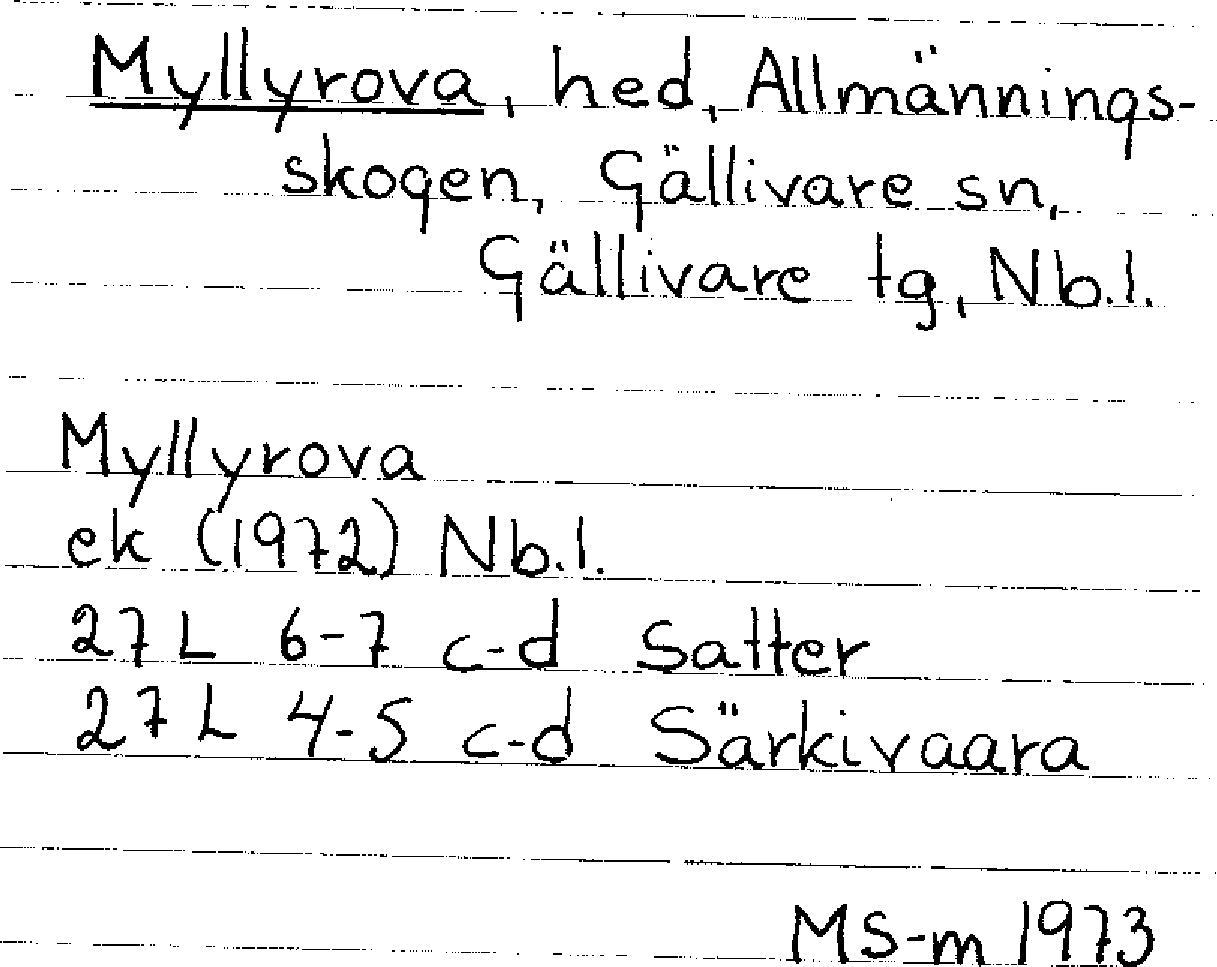 Myllyrova, hed, Allmännings-
skogen, Gällivare sn,
Gällivare tg, Nb.l.
Myllyrova
ek (1972) Nb.l.
27 L 6-7 c-d Satter
27 L 4-5 c-d Särkivaara
MS-m 1973